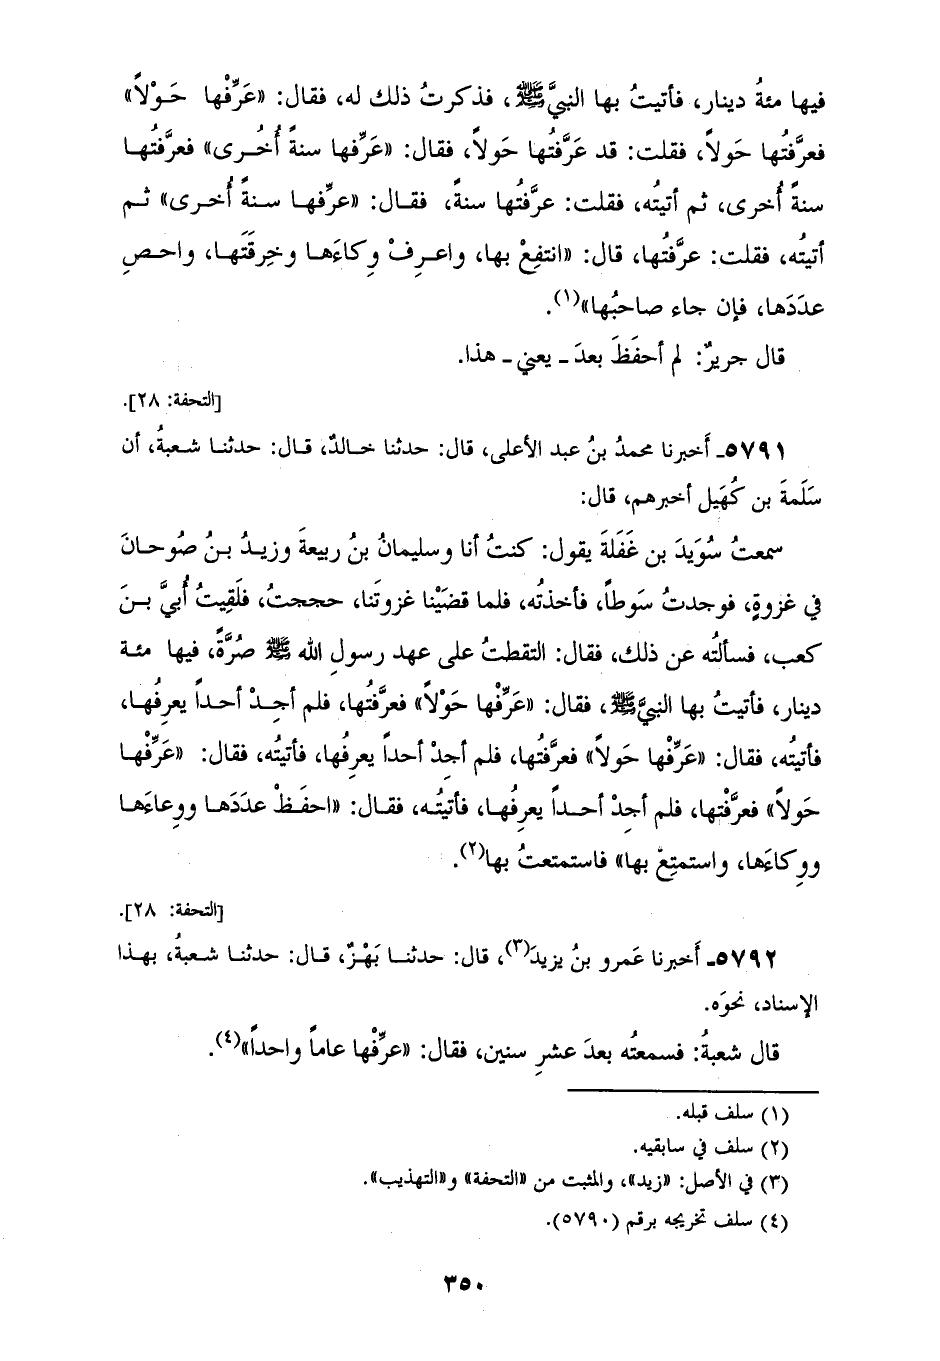 فيها مئةُ دينار، فأتيتُ بها النبيَّ ﷺ، فذكرتُ ذلك له، فقال: «عَرِّفْها حَوْلاً»
فعرَّفتُها حَولاً، فقلت: قد عَرَّفتُها حَولاً، فقال: «عَرِّفها سنةً أُخُرى» فعرَّفتُها
سنةً أُخرى، ثم أتيتُه، فقلت: عرَّفتُها سنةً، فقال: «عرِّفها سنةً أُخرى» ثم
أتيتُه، فقلت: عرَّفتُها، قال: «انتفِعْ بها، واعرِفْ وِكاءَها وخِرقَتَها، واحصِ
عددَها، فإن جاء صاحبُها»(١).
قال جريرٌ: لم أحفَظَ بعدَ ـ يعني ـ هذا.
[التحفة: ٢٨].
٥٧٩١ـ أَخبرنا محمدُ بنُ عبد الأعلى، قال: حدثنا خالدٌ، قال: حدثنا شعبةُ، أن
سَلَمةَ بن كُهَيل أخبرهم، قال:
سمعتُ سُوَيدَ بن غَفَلةَ يقول: كنتُ أنا وسليمانُ بنُ ربيعةَ وزيدُ بنُ صُوحانَ
في غزوةٍ، فوجدتُ سَوطاً، فأخذتُه، فلما قضَيْنا غزوتَنا، حججتُ، فلَقِيتُ أُبيَّ بنَ
كعب، فسألتُه عن ذلك، فقال: التقطتُ على عهد رسولِ الله ﷺ صُرَّةً، فيها مئة
دينار، فأتيتُ بها النبيَّ ﷺ، فقال: «عَرِّفْها حَوْلاً» فعرَّفتُها، فلم أجِدْ أحداً يعرِفُها،
فأتيتُه، فقال: «عَرِّفها حَولاً» فعرَّفتُها، فلم أجِدْ أحداً يعرِفُها، فأتيتُه، فقال: «عَرِّفْها
حَولاً» فعرَّفْتها، فلم أجِدْ أحداً يعرِفُها، فأتيتُه، فقال: «احفَظْ عددَها ووِعاءَها
ووِكاءَها، واستمتِعْ بها» فاستمتعتُ بها(٢).
[التحفة: ٢٨].
٥٧٩٢ـ أَخبرنا عَمرو بنُ يزيدَ(٣)، قال: حدثنا بَهْزٌ، قال: حدثنا شعبةُ، بهذا
الإسناد، نحوَه.
قال شعبةُ: فسمعتُه بعدَ عشرِ سنين، فقال: «عرِّفْها عاماً واحداً»(٤).
(١) سلف قبله.
(٢) سلف في سابقيه.
(٣) في الأصل: «زيد»، والمثبت من «التحفة» و«التهذيب».
(٤) سلف تخريجه برقم (٥٧٩٠).
٣٥٠